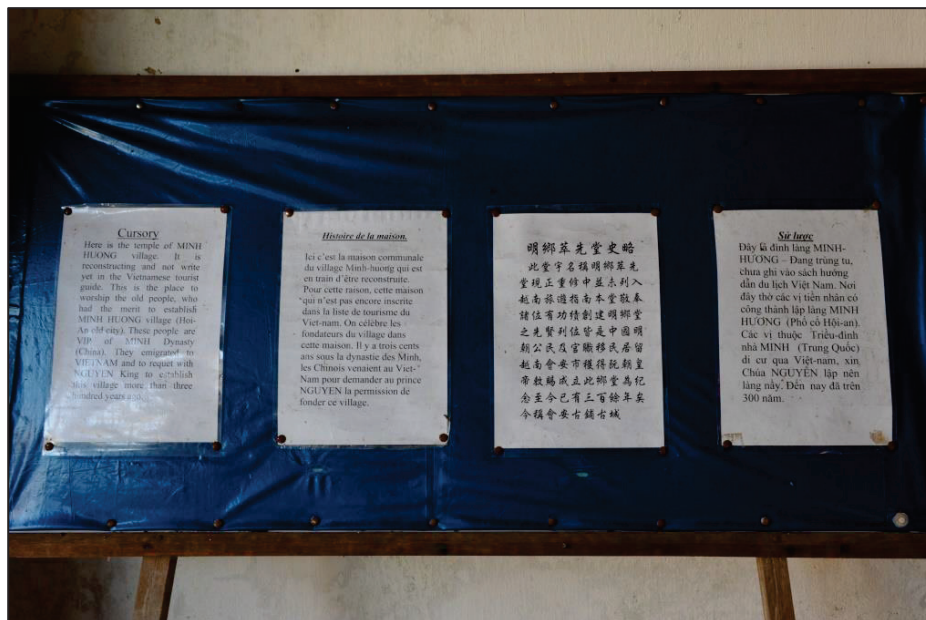 Cursory
Here is the temple of MINH
HUONG village. It is
reconstructing and not write
yet in the Vietnamese tourist
guide. This is the place to
worship the old people, who
had the merit to establish
MINH HUONG village (Hoi-
An old city). These people are
VIP of MINH Dynasty
(China). They emigrated to
VIETNAM and to requet with
NGUYEN King to establish
this village more than three
hundred years ago.
Histoire de la maison.
Ici c'est la maison communale
du village Minh-huong qui est
en train d'être reconstruite.
Pour cette raison, cette maison
qui n'est pas encore inscrite
dans la liste de tourisme du
Viet-nam. On célèbre les
fondateurs du village dans
cette maison. Il y a trois cents
ans sous la dynastie des Minh,
les Chinois venaient au Viet-
Nam pour demander au prince
NGUYEN la permission de
fonder ce village.
明鄉萃先堂史略
此堂字名稱明鄉萃先
堂現正重修中並未列入
越南旅遊指南本堂敬奉
諸位有功績創建明鄉堂
之先賢列位皆是中國明
朝公民及官職移民居留
越南會安市獲得阮朝皇
帝敕賜成立此鄉堂為紀
念至今已有三百餘年矣
今稱會安古鋪古城
Sử lược
Đây là đình làng MINH-
HƯƠNG – Đang trùng tu,
chưa ghi vào sách hướng
dẫn du lịch Việt Nam. Nơi
đây thờ các vị tiền nhân có
công thành lập làng MINH
HƯƠNG (Phố cổ Hội-an).
Các vị thuộc Triều-đình
nhà MINH (Trung Quốc)
di cư qua Việt-nam, xin
Chúa NGUYỄN lập nên
làng nầy. Đến nay đã trên
300 năm.